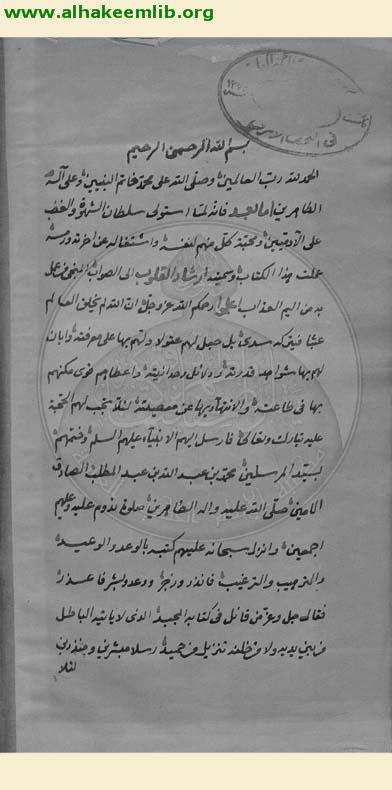 www.alhakeemlib.org
بسم الله الرحمن الرحيم
الحمد لله رب العالمين وصلى الله على محمد خاتم النبيين وعلى آله
الطاهرين اما بعد فانه لما استولى سلطان الشهوة والغضب
على الآدميين ومحبة كل منهم لنفسه واشتغاله عن آخرته ورمسه
عملت هذا الكتاب وسميته ارشاد القلوب الى الصواب المنجي من عمل
به من اليم العذاب اعلموا رحمكم الله عز وجل ان الله لم يخلق العالم
عبثا فيتركه سدى بل جعل لهم عقولا دلهم بها على معرفته وابان
لهم بها شواهد قدرته ودلائل وحدانيته واعطاهم قوى مكنهم
بها في طاعته والانتهاء بها عن معصيته لئلا تجب لهم الحجة
عليه تبارك وتعالى فارسل اليهم الانبياء عليهم السلم وختمهم
بسيد المرسلين محمد بن عبد الله بن عبد المطلب الصادق
الامين صلى الله عليه واله الطاهرين صلوة تدوم عليه وعليهم
اجمعين وانزل سبحانه عليهم كتبه بالوعد والوعيد
والترهيب والترغيب فانذر وزجر ووعد وبشر فاعذر
فقال جل وعز من قائل في كتابه المجيد الذى لا ياتيه الباطل
من بين يديه ولا من خلفه تنزيل من حميد رسلا مبشرين ومنذرين
لئلا